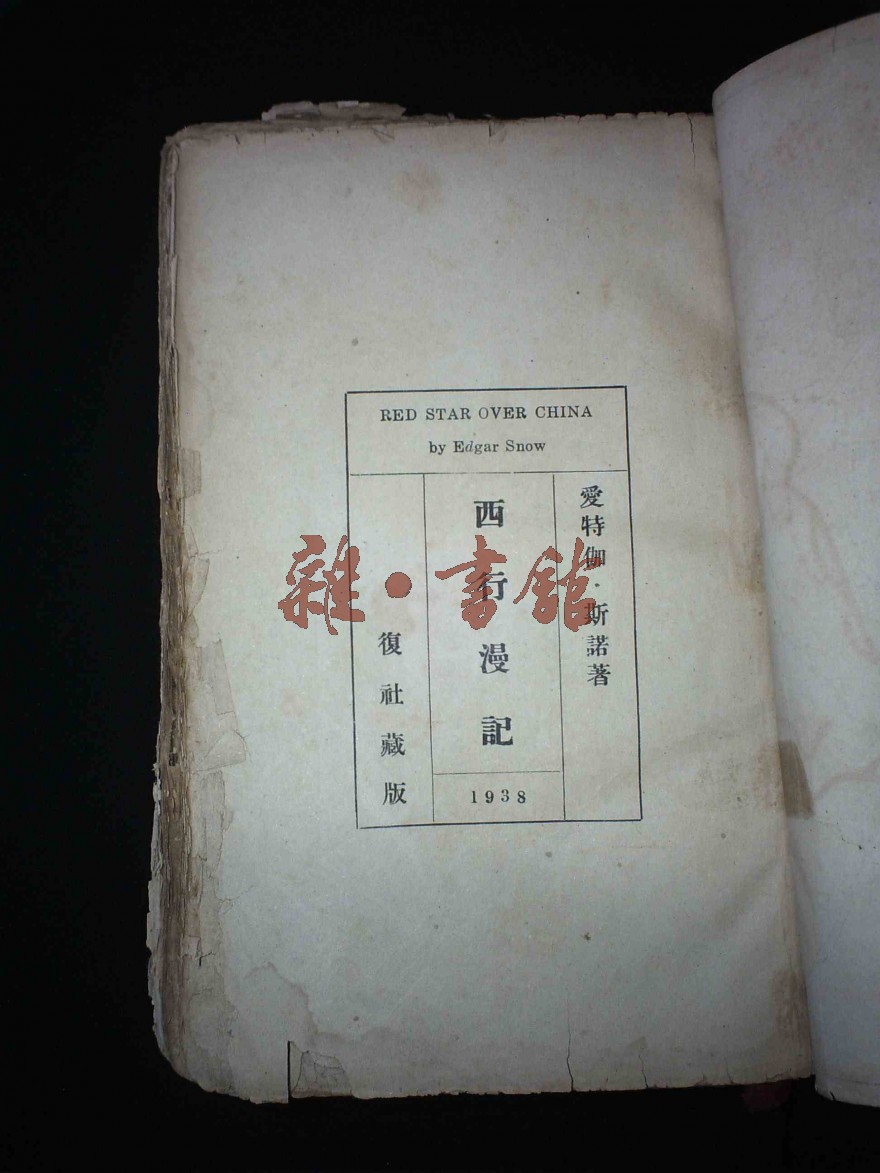 RED STAR OVER CHINA
by Edgar Snow
愛特伽·斯諾著
西行漫記
1938
復社藏版
雜·書館